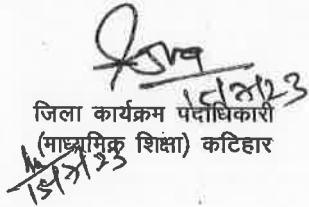 15/7/23
जिला कार्यक्रम पदाधिकारी
(माध्यमिक शिक्षा) कटिहार
15/7/23